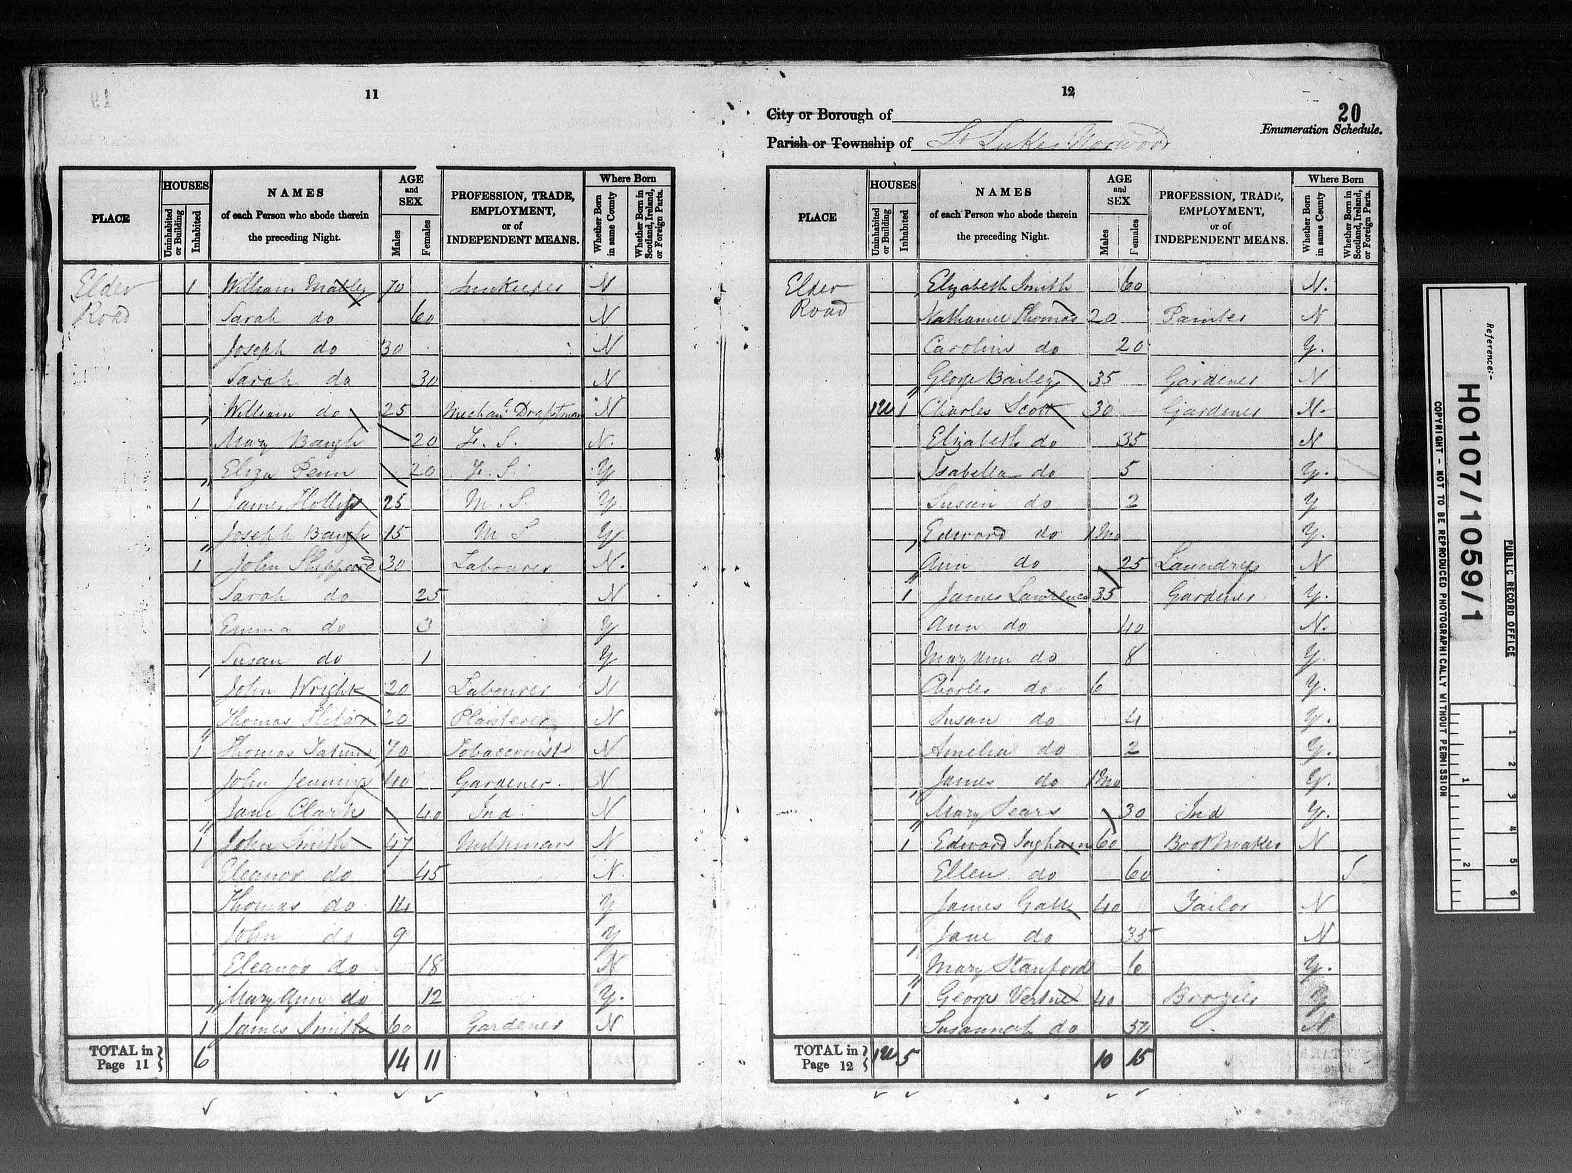 11
PLACE
HOUSES
Uninhabited or Building
Inhabited
NAMES
of each Person who abode therein
the preceding Night.
AGE
and
SEX
Males
Females
PROFESSION, TRADE,
EMPLOYMENT,
or of
INDEPENDENT MEANS.
Where Born
Whether Born in same County
Whether Born in Scotland, Ireland, or Foreign Parts.
Elder Road 1 William 70 Innkeeper N
Sarah do 60 N
Joseph do 30 N
Sarah do 30 N
William do 25 Mechanl Draftsman N
Mary Baugh 20 F. S. N.
Eliza Penn 20 F. S. Y
1 James Hollis 25 M. S Y
Joseph Baugh 15 M S Y
1 John Sheppard 30 Labourer N.
Sarah do 25 N
Emma do 3 Y
Susan do 1 Y
John Wright 20 Labourer N
Thomas 20 Plaisterer N
1 Thomas 70 Tobacconist N
John Jennings 40 Gardener. N
Jane Clark 40 Ind N
1 John Smith 47 Milkman N
Eleanor do 45 N.
Thomas do 14 Y
John do 9 Y
Eleanor do 18 N
Mary Ann do 12 Y.
1 James Smith 60 Gardener N
TOTAL in Page 11 } 6 14 11
12
City or Borough of
20
Enumeration Schedule.
Parish or Township of St Lukes Norwood
PLACE
HOUSES
Uninhabited or Building
Inhabited
NAMES
of each Person who abode therein
the preceding Night.
AGE
and
SEX
Males
Females
PROFESSION, TRADE,
EMPLOYMENT,
or of
INDEPENDENT MEANS.
Where Born
Whether Born in same County
Whether Born in Scotland, Ireland, or Foreign Parts.
Elder Road Elizabeth Smith 60 N.
Nathaniel Thomas 20 Painter N
Caroline do 20 Y.
George Bailey 35 Gardener N
1U 1 Charles Scott 30 Gardener N.
Elizabeth do 35 N
Isabella do 5 Y.
Susan do 2 Y
Edward do 1 Mo Y.
Ann do 25 Laundress N
1 James Lawrence 35 Gardener Y.
Ann do 40 N.
Mary Ann do 8 Y.
Charles do 6 Y.
Susan do 4 Y.
Amelia do 2 Y.
James do 1 Mo Y.
Mary Sears 30 Ind Y.
1 Edward Ingham 60 Boot Maker N
Ellen do 60 S
James 40 Tailor N
Jane do 35 N
Mary Stanford 6 Y.
1 George 40 Y
Susannah do 50 N
TOTAL in Page 12 } 1U 5 10 15
Reference:-
HO107/1059/1
PUBLIC RECORD OFFICE
COPYRIGHT - NOT TO BE REPRODUCED PHOTOGRAPHICALLY WITHOUT PERMISSION
1 2 3 4 5 6
1 2